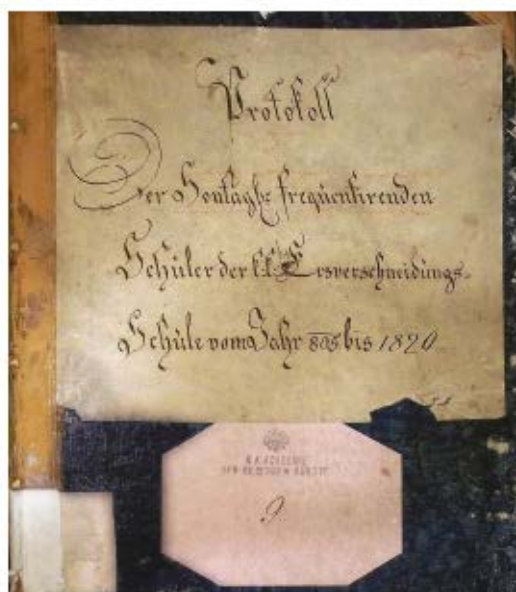 Protokoll
Der Sontägl: frequentirenden
Schüler der k.k. Erzverschneidungs-
Schule vom Jahr 805 bis 1820
K.K. ACADEMIE
DER BILDENDEN KÜNSTE
9.